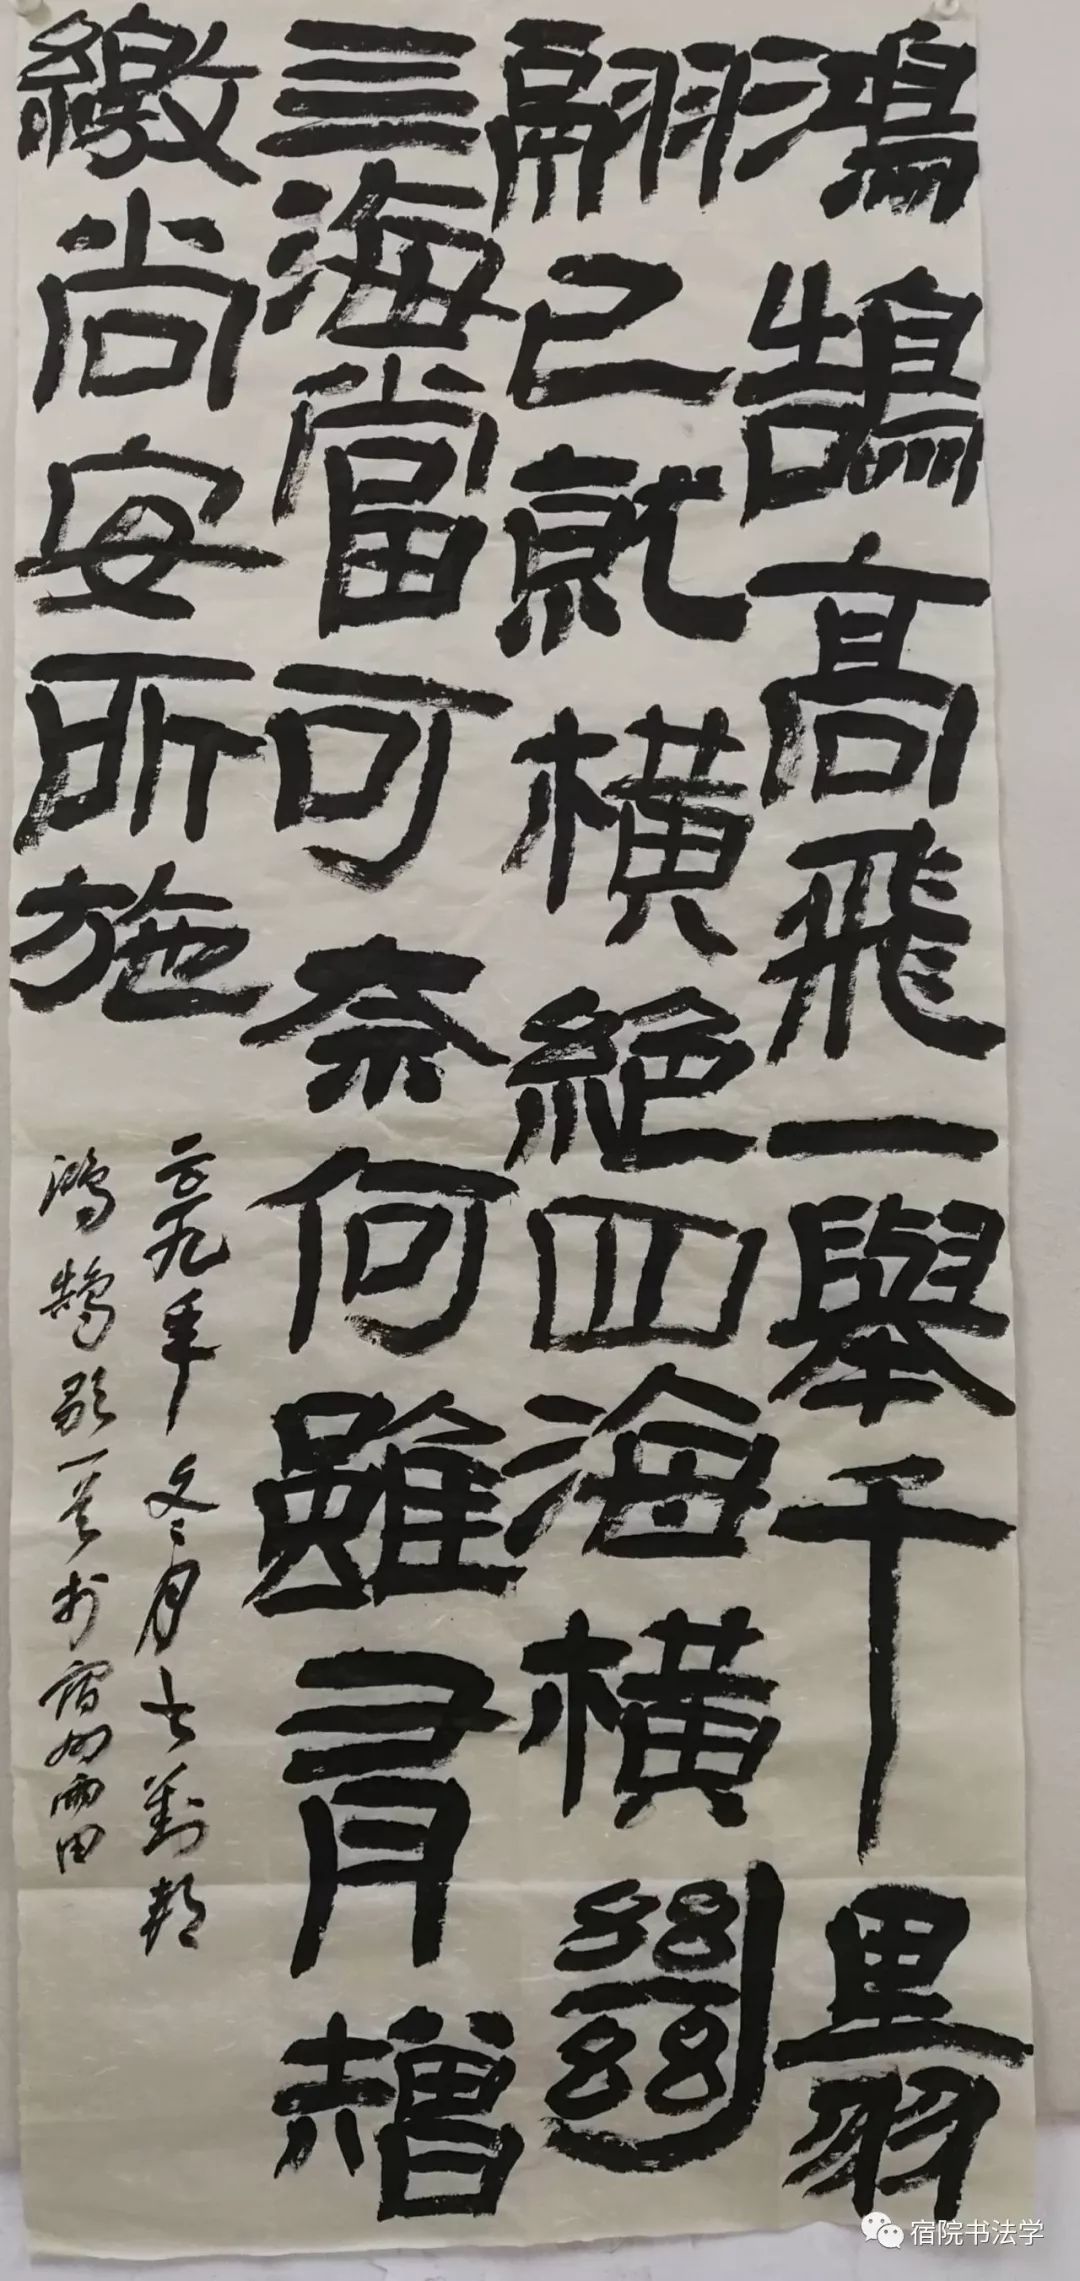 鴻鵠高飛一舉千里羽
翮已就橫絕四海橫絕
亖海當可奈何雖有矰
繳尚安所施
二〇一九年冬月書劉邦
鴻鵠歌一首於宿州雨田
宿院书法学